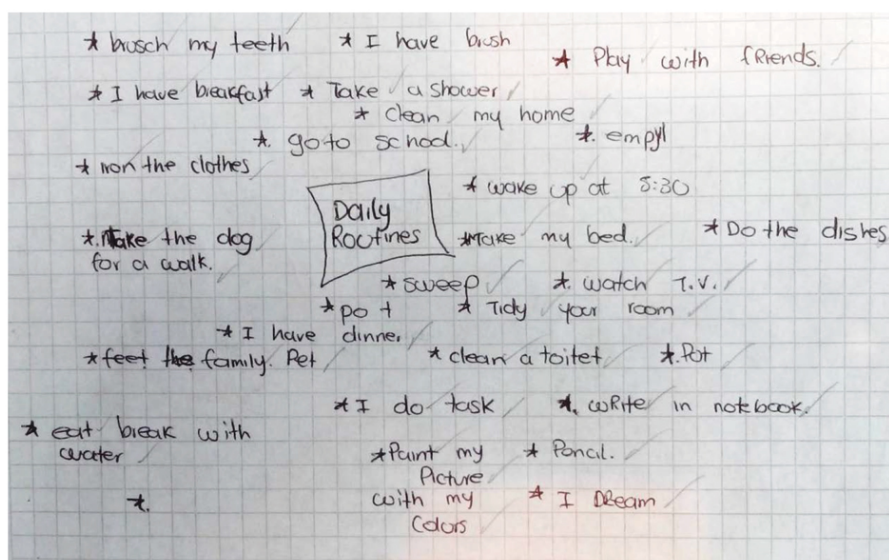 * brusch my teeth * I have brush
* Play with friends.
* I have breakfast * Take a shower
* clean my home
* go to school. * empyl
* iron the clothes
* wake up at 5:30
Daily
Routines
* Take the dog
for a walk.
* Take my bed. * Do the dishes
* sweep * watch T.V.
* po t * Tidy your room
* I have dinner
* feet the family. Pet * clean a toitet * Pot
* I do task * write in notbook.
* eat break with
water
* Paint my
Picture
with my
Colors
* Poncil.
* I Dream
*.